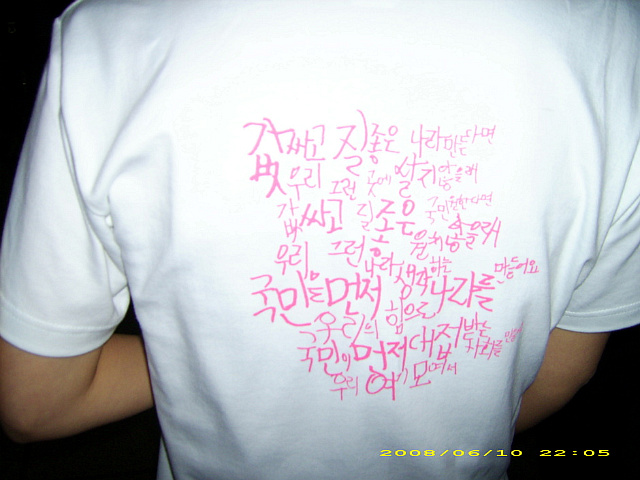 값싸고 질좋은 나라 만든다면
우리 그런 곳에 살지 않을래
값싸고 질 좋은 국민 원한다면
우리 그런 홍 원치 않을래
나라 생각하는
국민을 먼저 생각 나라를 만들어요
우리의 힘으로
국민이 먼저 대접 받는 사회를
우리 여기 모여서
2008/06/10 22:05